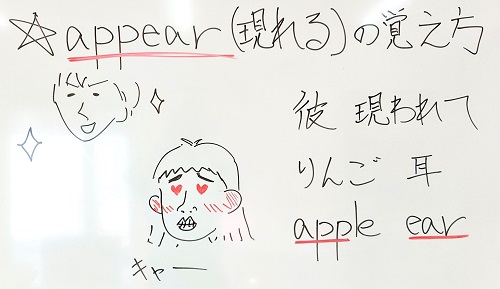 ☆appear(現れる)の覚え方
彼 現われて
りんご 耳
apple ear
キャー